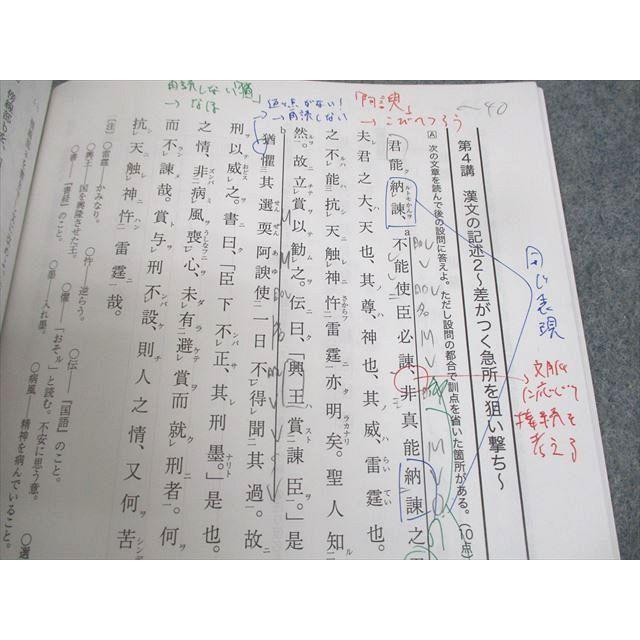 第4講 漢文の記述2～差がつく急所を狙い撃ち～
A 次の文章を読んで後の設問に答えよ。ただし設問の都合で訓点を省いた箇所がある。(10点)
君能納諫、不能使臣必諫、非真能納諫之
夫君之大、天也、其尊、神也、其威、雷霆也。
之不能抗天触神忤雷霆亦明矣。聖人知
然。故立賞以勧之。伝曰、「興王賞諫臣。」是
猶懼其選耎阿諛使一日不得聞其過。故
刑以威之。書曰、「臣下不正、其刑墨。」是也。
之情、非病風喪心、未有避賞而就刑者。何
而不諫哉。賞与刑不設、則人之情、又何苦
抗天触神忤雷霆哉。
〔注〕 ○雷霆―かみなり。 ○忤―逆らう。 ○伝―『国語』のこと。
○興王―国を興隆させた王。 ○懼―「おそル」と読む。不安に思う意。 ○選
○書―『書経』のこと。 ○墨―入れ墨。 ○病風―精神を病んでいること。
同じ表現
文脈に応じて
接続を考える
「阿諛」
→こびへつらう
返り点がない!
→再読しない
再読しない「猶」
→なほ
～40